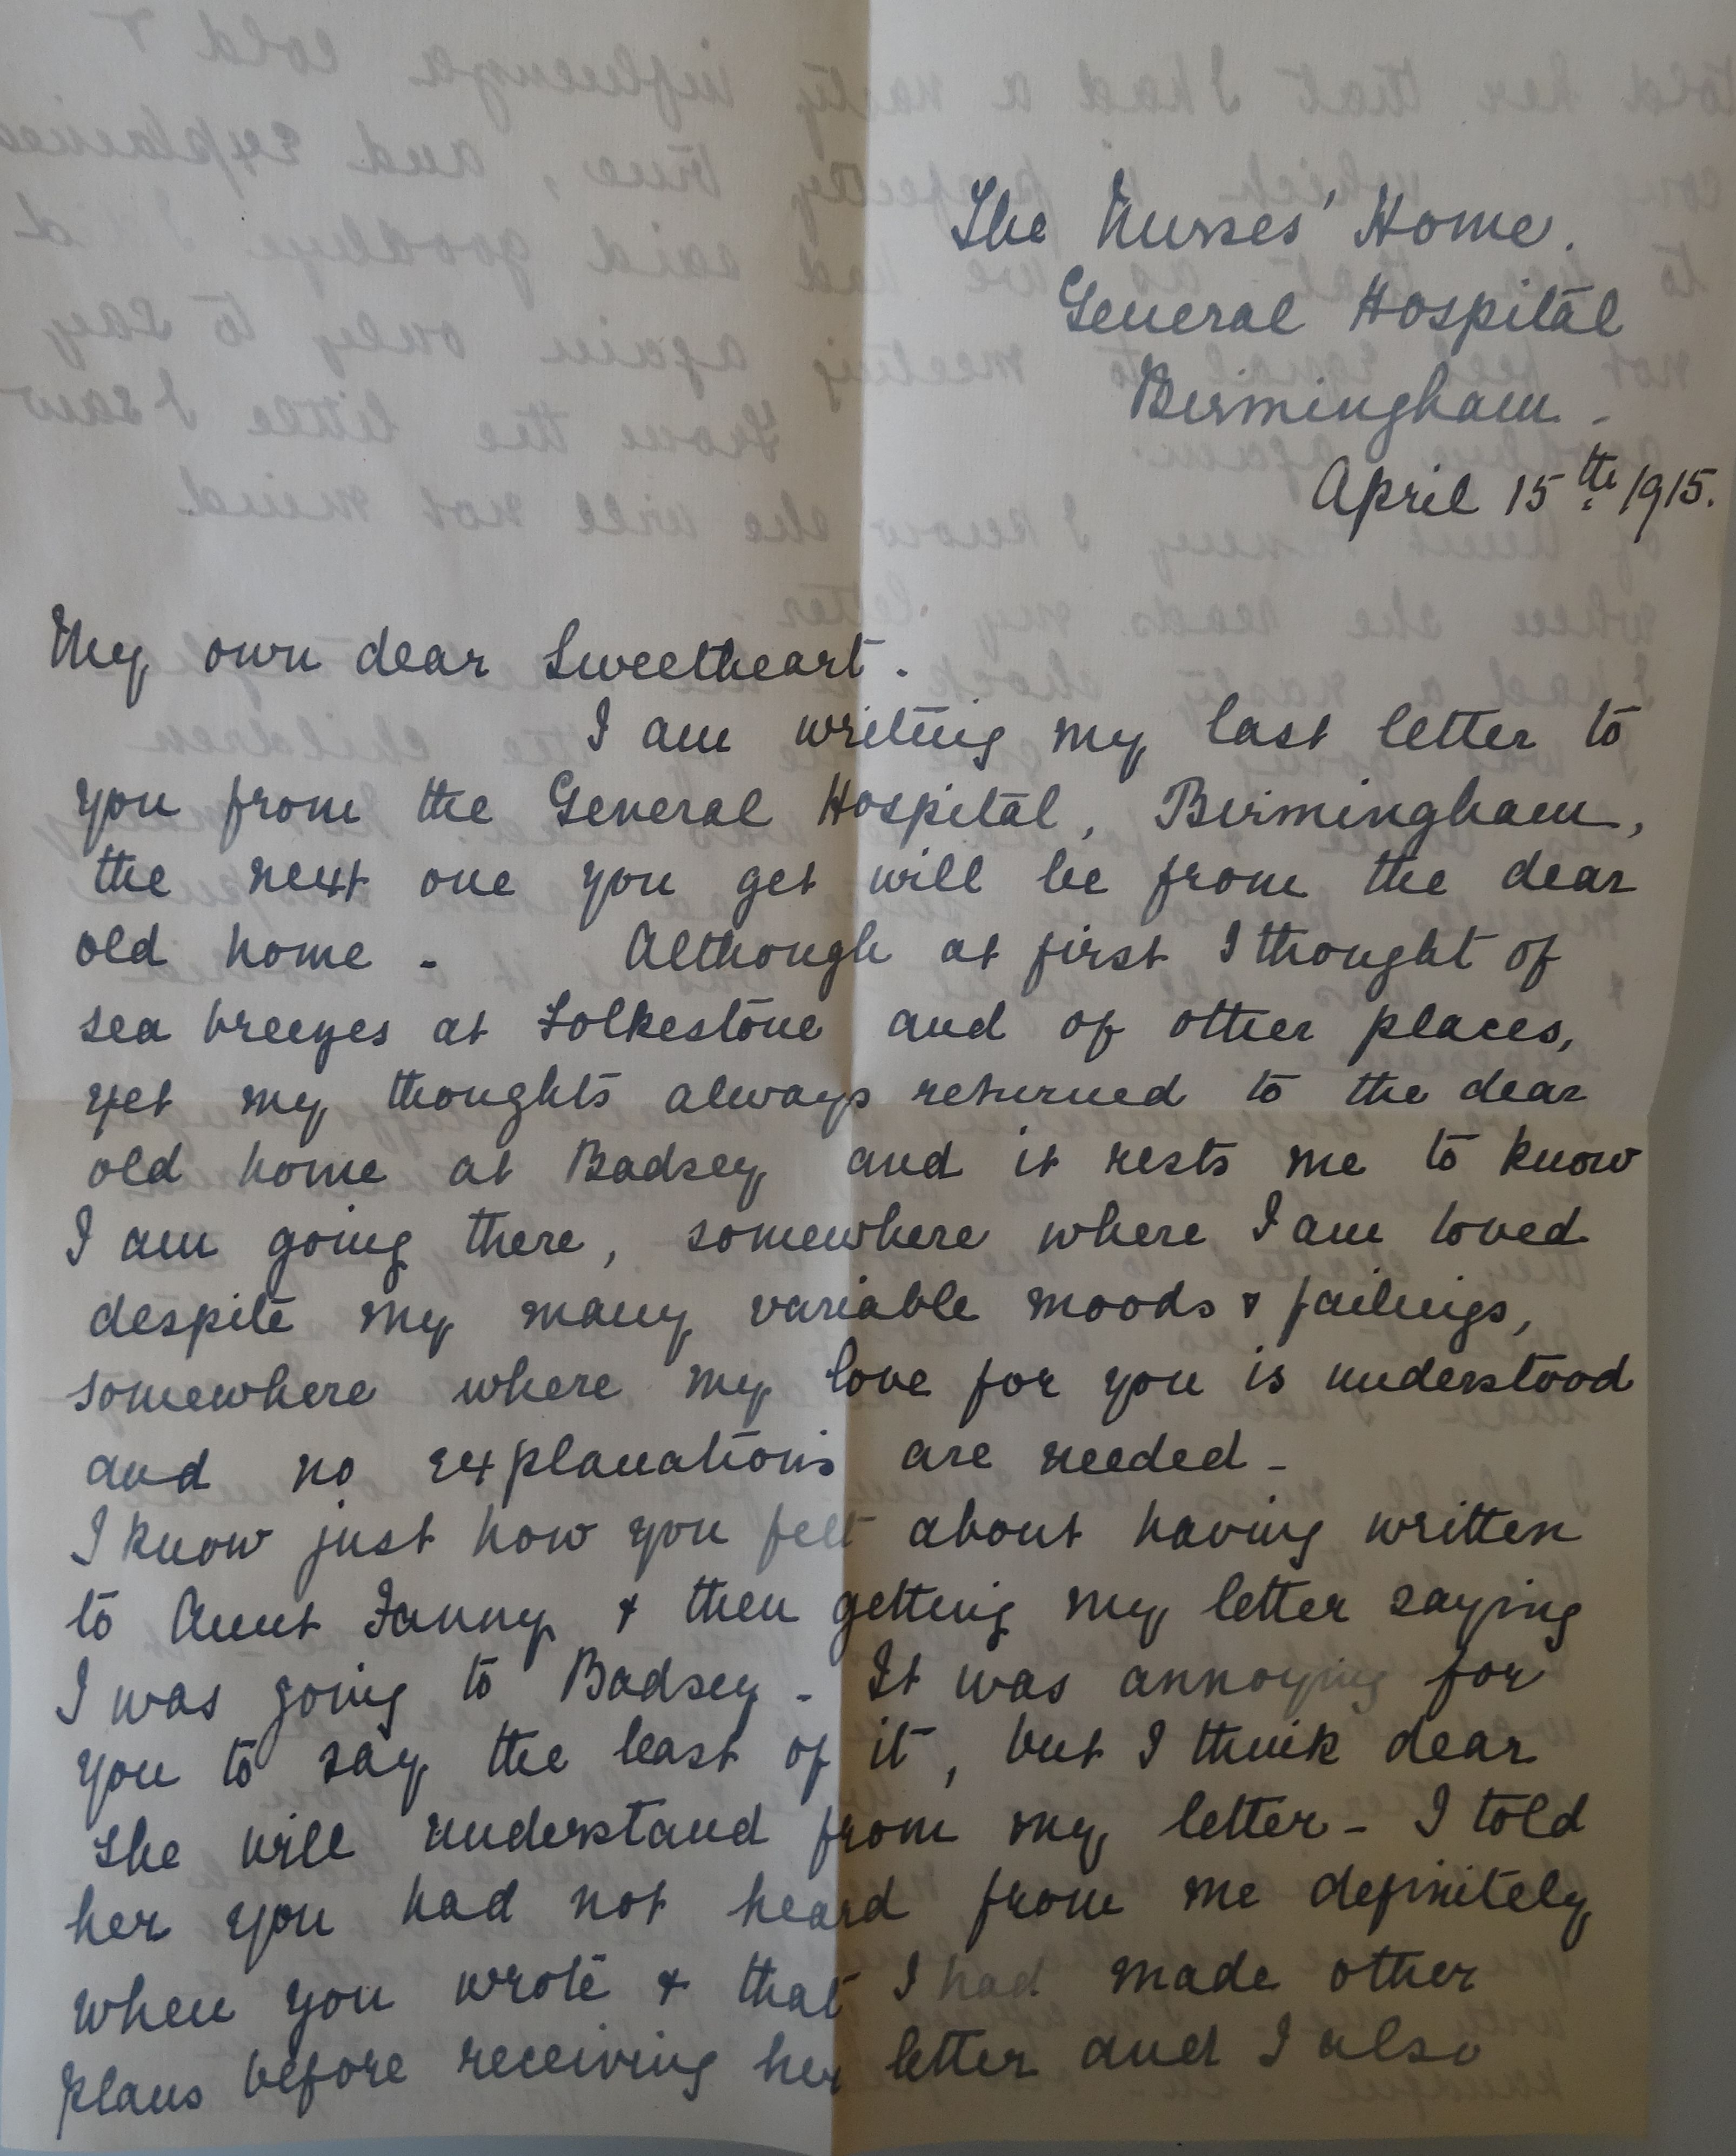 The Nurses' Home.
General Hospital
Birmingham -
April 15th 1915.
My own dear Sweetheart.
I am writing my last letter to
you from the General Hospital, Birmingham,
the next one you get will be from the dear
old home - Although at first I thought of
sea breezes at Folkestone and of other places,
yet my thoughts always returned to the dear
old home at Badsey and it rests me to know
I am going there, somewhere where I am loved
despite my many variable moods & failings,
somewhere where my love for you is understood
and no explanations are needed -
I know just how you felt about having written
to Aunt Fanny & then getting my letter saying
I was going to Badsey - It was annoying for
you to say the least of it, but I think dear
she will understand from my letter - I told
her you had not heard from me definitely
when you wrote & that I had made other
plans before receiving her letter and I also